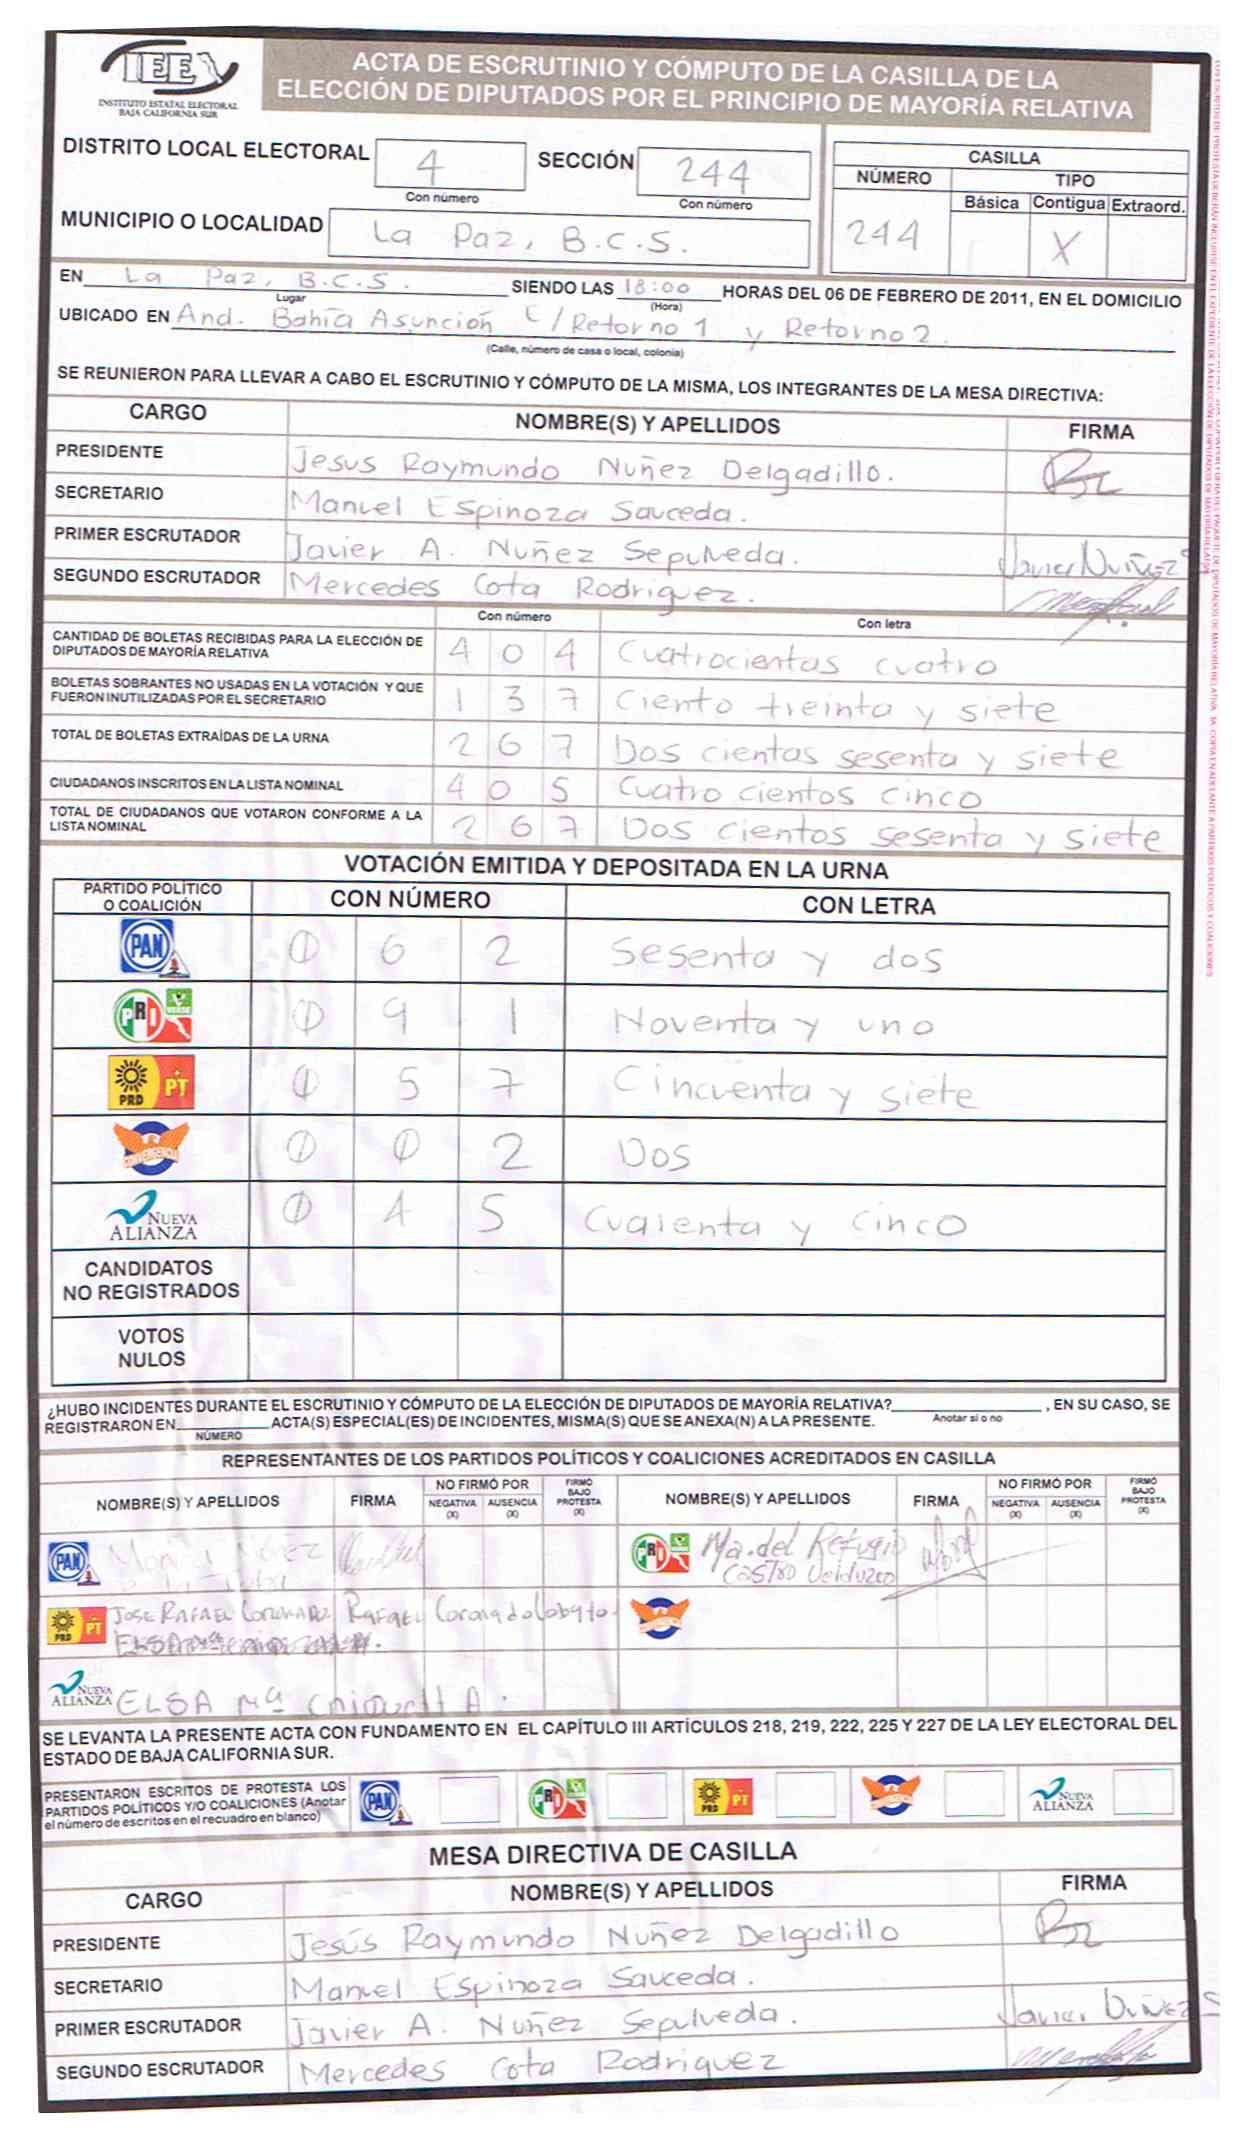 IEE
INSTITUTO ESTATAL ELECTORAL
BAJA CALIFORNIA SUR
ACTA DE ESCRUTINIO Y CÓMPUTO DE LA CASILLA DE LA
ELECCIÓN DE DIPUTADOS POR EL PRINCIPIO DE MAYORÍA RELATIVA
DISTRITO LOCAL ELECTORAL 4 SECCIÓN 244
Con número Con número
MUNICIPIO O LOCALIDAD La Paz, B.C.S.
CASILLA
NÚMERO TIPO
Básica Contigua Extraord.
244 X
EN La Paz, B.C.S. SIENDO LAS 18:00 HORAS DEL 06 DE FEBRERO DE 2011, EN EL DOMICILIO
Lugar (Hora)
UBICADO EN And. Bahía Asunción C/Retorno 1 y Retorno 2.
(Calle, número de casa o local, colonia)
SE REUNIERON PARA LLEVAR A CABO EL ESCRUTINIO Y CÓMPUTO DE LA MISMA, LOS INTEGRANTES DE LA MESA DIRECTIVA:
CARGO NOMBRE(S) Y APELLIDOS FIRMA
PRESIDENTE Jesus Raymundo Nuñez Delgadillo.
SECRETARIO Manuel Espinoza Sauceda.
PRIMER ESCRUTADOR Javier A. Nuñez Sepulveda. Javier Nuñez S
SEGUNDO ESCRUTADOR Mercedes Cota Rodriguez.
Con número Con letra
CANTIDAD DE BOLETAS RECIBIDAS PARA LA ELECCIÓN DE
DIPUTADOS DE MAYORÍA RELATIVA 4 0 4 Cuatrocientas cuatro
BOLETAS SOBRANTES NO USADAS EN LA VOTACIÓN Y QUE
FUERON INUTILIZADAS POR EL SECRETARIO 1 3 7 Ciento treinta y siete
TOTAL DE BOLETAS EXTRAÍDAS DE LA URNA 2 6 7 Dos cientas sesenta y siete
CIUDADANOS INSCRITOS EN LA LISTA NOMINAL 4 0 5 Cuatro cientos cinco
TOTAL DE CIUDADANOS QUE VOTARON CONFORME A LA
LISTA NOMINAL 2 6 7 Dos cientos sesenta y siete
VOTACIÓN EMITIDA Y DEPOSITADA EN LA URNA
PARTIDO POLÍTICO
O COALICIÓN CON NÚMERO CON LETRA
PAN 0 6 2 Sesenta y dos
PRI VERDE 0 9 1 Noventa y uno
PRD PT 0 5 7 Cincuenta y siete
CONVERGENCIA 0 0 2 Dos
NUEVA ALIANZA 0 4 5 Cuarenta y cinco
CANDIDATOS
NO REGISTRADOS
VOTOS
NULOS
¿HUBO INCIDENTES DURANTE EL ESCRUTINIO Y CÓMPUTO DE LA ELECCIÓN DE DIPUTADOS DE MAYORÍA RELATIVA? , EN SU CASO, SE
Anotar si o no
REGISTRARON EN ACTA(S) ESPECIAL(ES) DE INCIDENTES, MISMA(S) QUE SE ANEXA(N) A LA PRESENTE.
NÚMERO
REPRESENTANTES DE LOS PARTIDOS POLÍTICOS Y COALICIONES ACREDITADOS EN CASILLA
NOMBRE(S) Y APELLIDOS FIRMA NO FIRMÓ POR NEGATIVA (X) AUSENCIA (X) FIRMÓ BAJO PROTESTA (X) NOMBRE(S) Y APELLIDOS FIRMA NO FIRMÓ POR NEGATIVA (X) AUSENCIA (X) FIRMÓ BAJO PROTESTA (X)
PAN PRI Ma. del Refugio
Castro Verduzco
PRD PT JOSE RAFAEL Rafael Coronado
CONVERGENCIA
NUEVA ALIANZA ELSA Mª
SE LEVANTA LA PRESENTE ACTA CON FUNDAMENTO EN EL CAPÍTULO III ARTÍCULOS 218, 219, 222, 225 Y 227 DE LA LEY ELECTORAL DEL
ESTADO DE BAJA CALIFORNIA SUR.
PRESENTARON ESCRITOS DE PROTESTA LOS
PARTIDOS POLÍTICOS Y/O COALICIONES (Anotar
el número de escritos en el recuadro en blanco)
PAN PRI PRD PT CONVERGENCIA NUEVA ALIANZA
MESA DIRECTIVA DE CASILLA
CARGO NOMBRE(S) Y APELLIDOS FIRMA
PRESIDENTE Jesús Raymundo Nuñez Delgadillo
SECRETARIO Manuel Espinoza Sauceda.
PRIMER ESCRUTADOR Javier A. Nuñez Sepulveda. Javier Nuñez S
SEGUNDO ESCRUTADOR Mercedes Cota Rodriguez